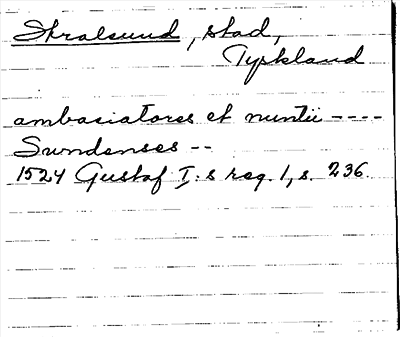 Stralsund, stad,
Tyskland
ambasiatores et nuntii ----
Sundenses --
1524 Gustaf I:s reg. 1, s. 236.